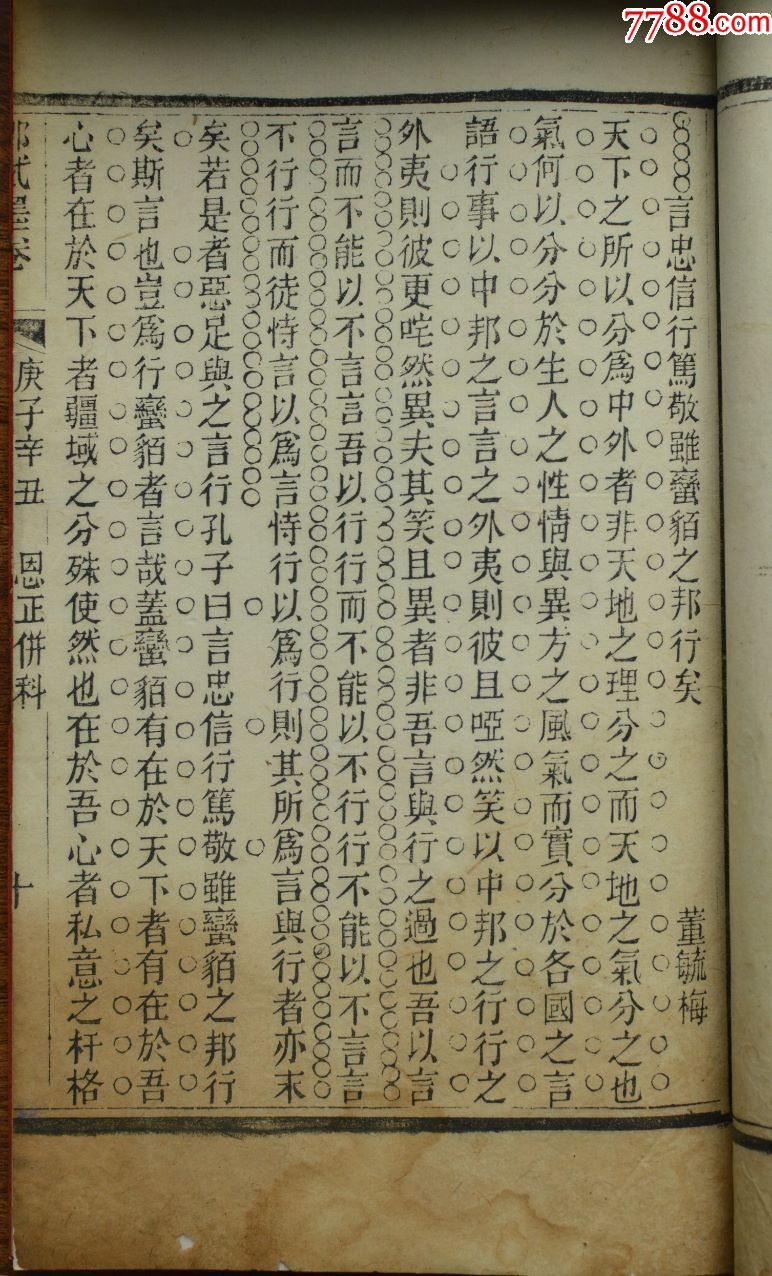 7788.com
○○○言忠信行篤敬雖蠻貊之邦行矣
董毓梅
天下之所以分爲中外者非天地之理分之而天地之氣分之也
氣何以分分於生人之性情與異方之風氣而實分於各國之言
語行事以中邦之言言之外夷則彼且啞然笑以中邦之行行之
外夷則彼更咤然異夫其笑且異者非吾言與行之過也吾以言
言而不能以不言言吾以行行而不能以不行行不能以不言言
不行行而徒恃言以爲言恃行以爲行則其所爲言與行者亦末
矣若是者惡足與之言行孔子曰言忠信行篤敬雖蠻貊之邦行
矣斯言也豈爲行蠻貊者言哉蓋蠻貊有在於天下者有在於吾
心者在於天下者疆域之分殊使然也在於吾心者私意之杆格
庚子辛丑 恩正併科
十